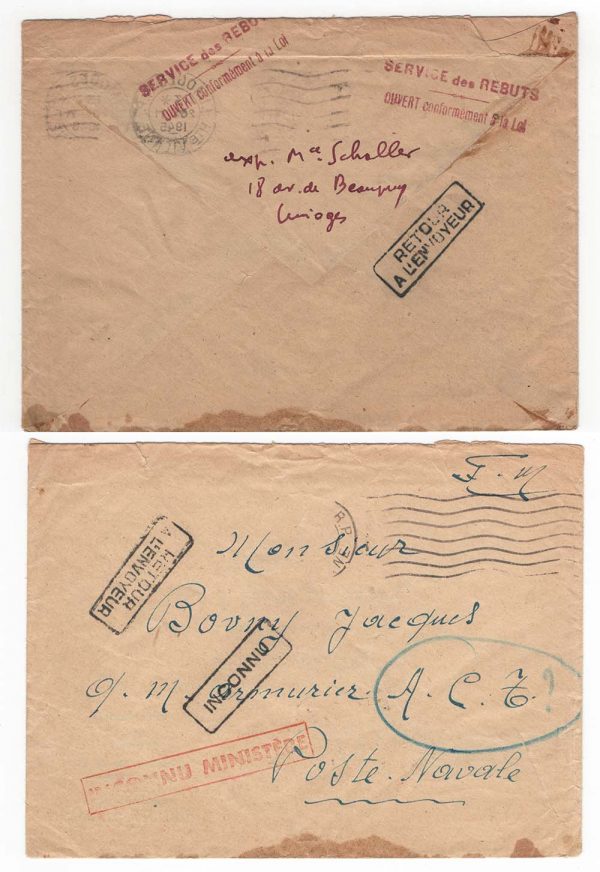 SERVICE des REBUTS
OUVERT conformément à la Loi
SERVICE des REBUTS
OUVERT conformément à la Loi
exp. Me Schaller
18 av. de Beaupuy
Limoges
RETOUR
A L'ENVOYEUR
F. M
R.P.
Monsieur
Bovny Jacques
q. M. armurier A. C. T. ?
Poste Navale
RETOUR
A L'ENVOYEUR
INCONNU
INCONNU MINISTÈRE